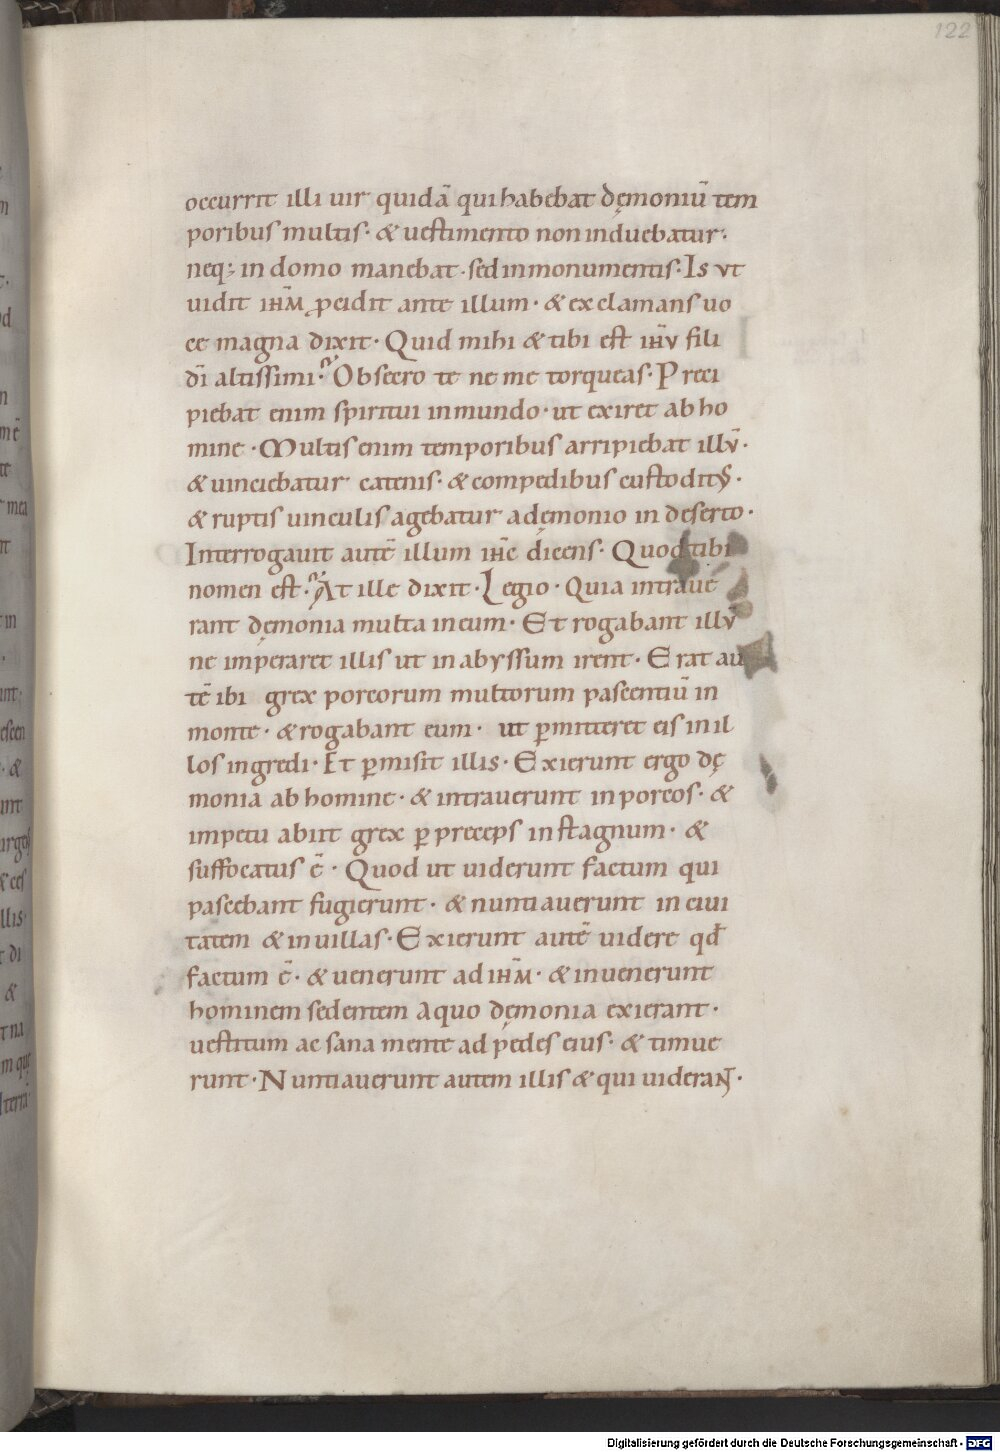 122
occurrit illi uir quidā qui habebat dęmoniū tem
poribus multis· & uestimento non induebatur·
neq; in domo manebat· sed in monumentis· Is vt
uidit ihm̄ ꝓcidit ante illum· & exclamans uo
ce magna dixit· Quid mihi & tibi est ihv̄ fili
dī altissimi? Obsecro te ne me torqueas· Preci
piebat enim spiritui inmundo· ut exiret ab ho
mine· Multis enim temporibus arripiebat illv̄·
& uinciebatur catenis· & compedibus custoditꝰ·
& ruptis uinculis agebatur a dęmonio in deserto·
Interrogauit autē illum ihc̄ dicens· Quod tibi
nomen est? At ille dixit· Legio· Quia intraue
rant dęmonia multa in eum· Et rogabant illv̄
ne imperaret illis ut in abyssum irent· Erat au
tē ibi grex porcorum multorum pascentiū in
monte· & rogabant eum· ut ꝑmitteret eis in il
los ingredi· Et ꝑmisit illis· Exierunt ergo dę
monia ab homine· & intrauerunt in porcos· &
impetu abiit grex ꝑ pręceps in stagnum· &
suffocatus ē· Quod ut uiderunt factum qui
pascebant fugierunt· & nuntiauerunt in ciui
tatem & in uillas· Exierunt autē uidere qđ
factum ē· & uenerunt ad ihm̄· & inuenerunt
hominem sedentem a quo dęmonia exierant·
uestitum ac sana mente ad pedes eius· & timue
runt· Nuntiauerunt autem illis & qui uiderant·
Digitalisierung gefördert durch die Deutsche Forschungsgemeinschaft - DFG